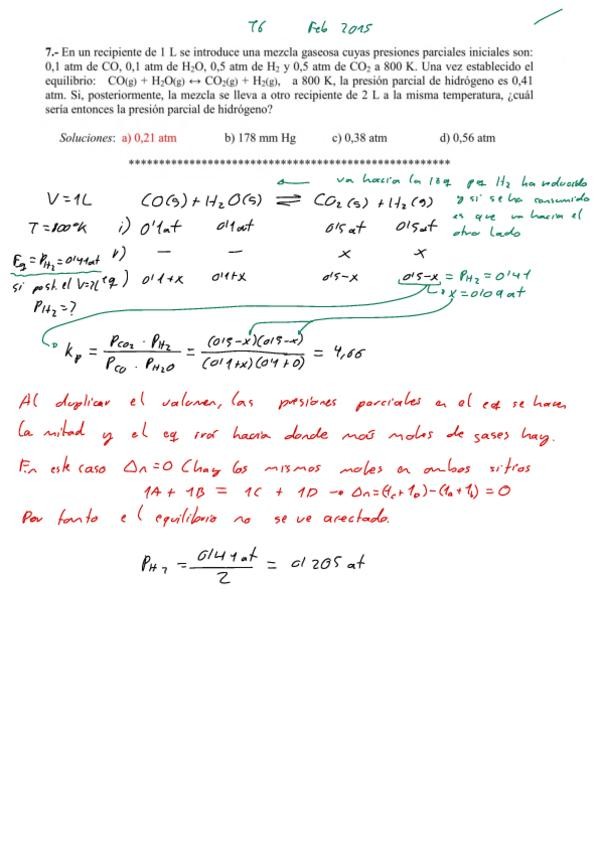 T6 Feb 2015
7.- En un recipiente de 1 L se introduce una mezcla gaseosa cuyas presiones parciales iniciales son:
0,1 atm de CO, 0,1 atm de H₂O, 0,5 atm de H₂ y 0,5 atm de CO₂ a 800 K. Una vez establecido el
equilibrio: CO(g) + H₂O(g) ↔ CO₂(g) + H₂(g), a 800 K, la presión parcial de hidrógeno es 0,41
atm. Si, posteriormente, la mezcla se lleva a otro recipiente de 2 L a la misma temperatura, ¿cuál
sería entonces la presión parcial de hidrógeno?
Soluciones: a) 0,21 atm b) 178 mm Hg c) 0,38 atm d) 0,56 atm
******************************************************
← va hacia la izq pq H₂ ha reducido
V = 1L CO(g) + H₂O(g) ⇌ CO₂(g) + H₂(g) y si se ha consumido
es que va hacia el
T = 800°K i) 0'1 at 0'1 at 0'5 at 0'5 at otro lado
Eq = P H₂ = 0'41 at r) — — x x
si post. el V = 2L eq) 0'1+x 0'1+x 0'5-x 0'5-x = P H₂ = 0'41
P H₂ = ? x = 0'09 at
Kp = P CO₂ · P H₂ / P CO · P H₂O = (0'5-x)(0'5-x) / (0'1+x)(0'1+x) = 4,66
Al duplicar el volumen, las presiones parciales en el eq se hacen
la mitad y el eq irá hacia donde más moles de gases hay.
En este caso Δn=0 (hay los mismos moles en ambos sitios
1A + 1B = 1C + 1D → Δn = (1c + 1D) - (1a + 1b) = 0
Por tanto el equilibrio no se ve afectado.
P H₂ = 0'41 at / 2 = 0'205 at